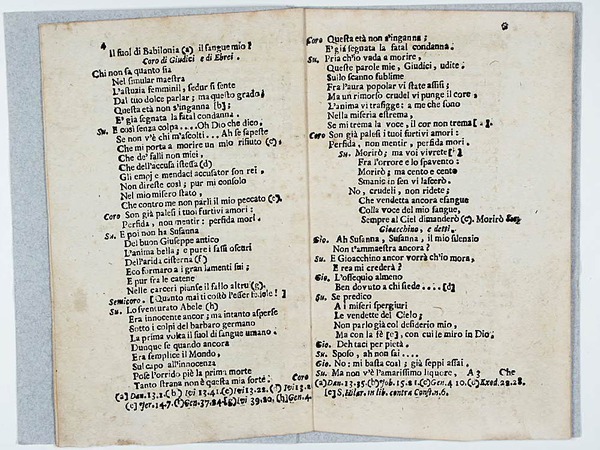 4
Il suol di Babilonia (a) il sangue mio?
Coro di Giudici e di Ebrei.
Chi non sa quanto sia
Nel simular maestra
L'astuzia femminil, sedur si sente
Dal tuo dolce parlar; ma questo grado
Questa età non s'inganna [b];
E' già segnata la fatal condanna.
Su. E così senza colpa....Oh Dio che dico,
Se non v'è chi m'ascolti... Ah se sapeste
Che mi porta a morire un mio rifiuto (c),
Che de' falli non miei,
Che dell'accusa istessa (d)
Gli empj e mendaci accusator son rei,
Non direste così; pur mi consolo
Nel mio misero stato,
Che contro me non parli il mio peccato (e).
Coro Son già palesi i tuoi furtivi amori:
Perfida, non mentir: perfida mori.
Su. E poi non ha Susanna
Del buon Giuseppe antico
L'anima bella; e pure i sassi oscuri
Dell'arida cisterna (f)
Eco formaro a i gran lamenti sui;
E pur fra le catene
Nelle carceri pianse il fallo altrui (g).
Semicoro. [Quanto mai ti costò l'esser fedele!]
Su. Lo sventurato Abele (h)
Era innocente ancor; ma intanto asperse
Sotto i colpi del barbaro germano
La prima volta il suol di sangue umano.
Dunque se quando ancora
Era semplice il Mondo,
Sul capo all'innocenza
Pose l'orrido piè la prima morte
Tanto strana non è questa mia sorte.
Coro
(a) Dan. 13.1. (b) ivi 13.41 (c) ivi 13.22. (d) ivi 13.2
(e) Jer. 14.7. (f) Gen. 37.24 (g) ivi 39.20. (h) Gen. 4.
Coro Questa età non s'inganna;
E' già segnata la fatal condanna.
Su. Pria ch'io vada a morire,
Queste parole mie, Giudici, udite.
Sullo scanno sublime
Fra l'aura popolar vi state assisi;
Ma un rimorso crudel vi punge il core,
L'anima vi trafigge: a me che sono
Nella miseria estrema,
Se mi trema la voce, il cor non trema [a].
Coro Son già palesi i tuoi furtivi amori:
Perfida, non mentir, perfida mori.
Su. Morirò; ma voi vivrete [b]
Fra l'orrore e lo spavento:
Morirò; ma cento e cento
Smanie in sen vi lascerò.
No, crudeli, non ridete;
Che vendetta ancora esangue
Colla voce del mio sangue,
Sempre al Ciel dimanderò (c). Morirò
Gioacchino, e detti.
Gio. Ah Susanna, Susanna, il mio silenzio
Non t'ammaestra ancora?
Su. E Gioacchino ancor vorrà ch'io mora,
E rea mi crederà?
Gio. L'ossequio almeno
Ben dovuto a chi siede.... [d]
Su. Se predico
A i miseri spergiuri
Le vendette del Cielo;
Non parlo già col desiderio mio,
Ma con la fè [e], con cui le miro in Dio.
Gio. Deh taci per pietà.
Su. Sposo, ah non sai....
Gio. No: mi basta così; già seppi assai.
Su. Ma non v'è l'amarissimo liquore,
A 3 Che
(a) Dan. 13.35. (b) Job. 15.21. (c) Gen. 4 10. (d) Exod. 22.28.
[e] S. Hilar. in lib. contra Const. n.6.